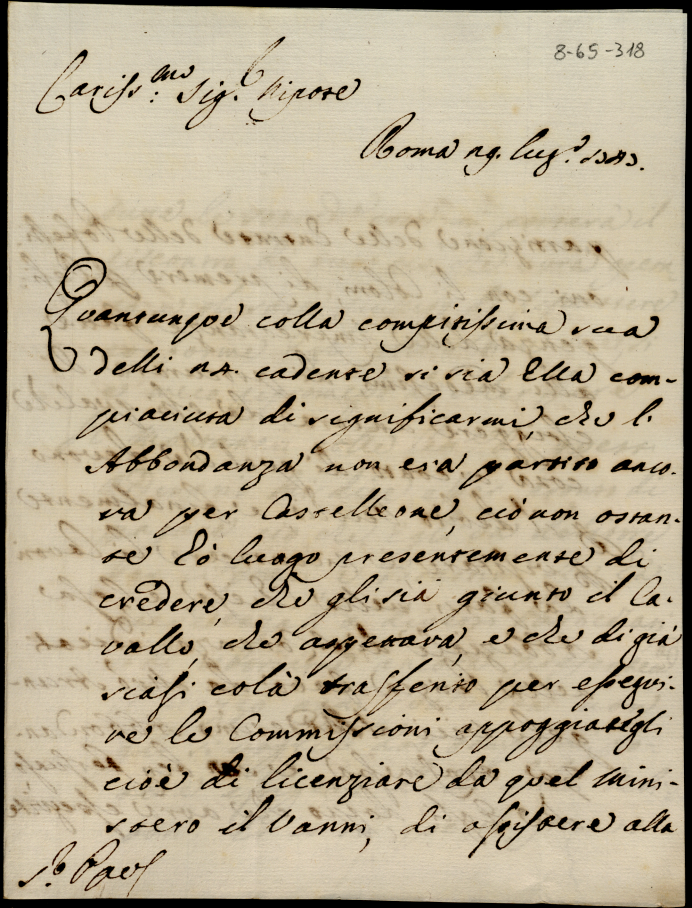 8-65-318
Cariss:mo Sig.r Nipote
Roma 29. lug.o
Quantunque colla compitissima sua
delli 24. cadente si sia Ella com-
piaciuta di significarmi, che l'
Abbondanza non era partito anco-
ra per Castelleone, ciò non ostan-
te hò luogo presentemente di
credere, che gli sia giunto il Ca-
vallo, che aspettava, e che di già
siasi colà trasferito per esegui-
re le Commissioni appoggiategli
cioè di licenziare da quel Mini-
stero il Vanni, di assistere alla